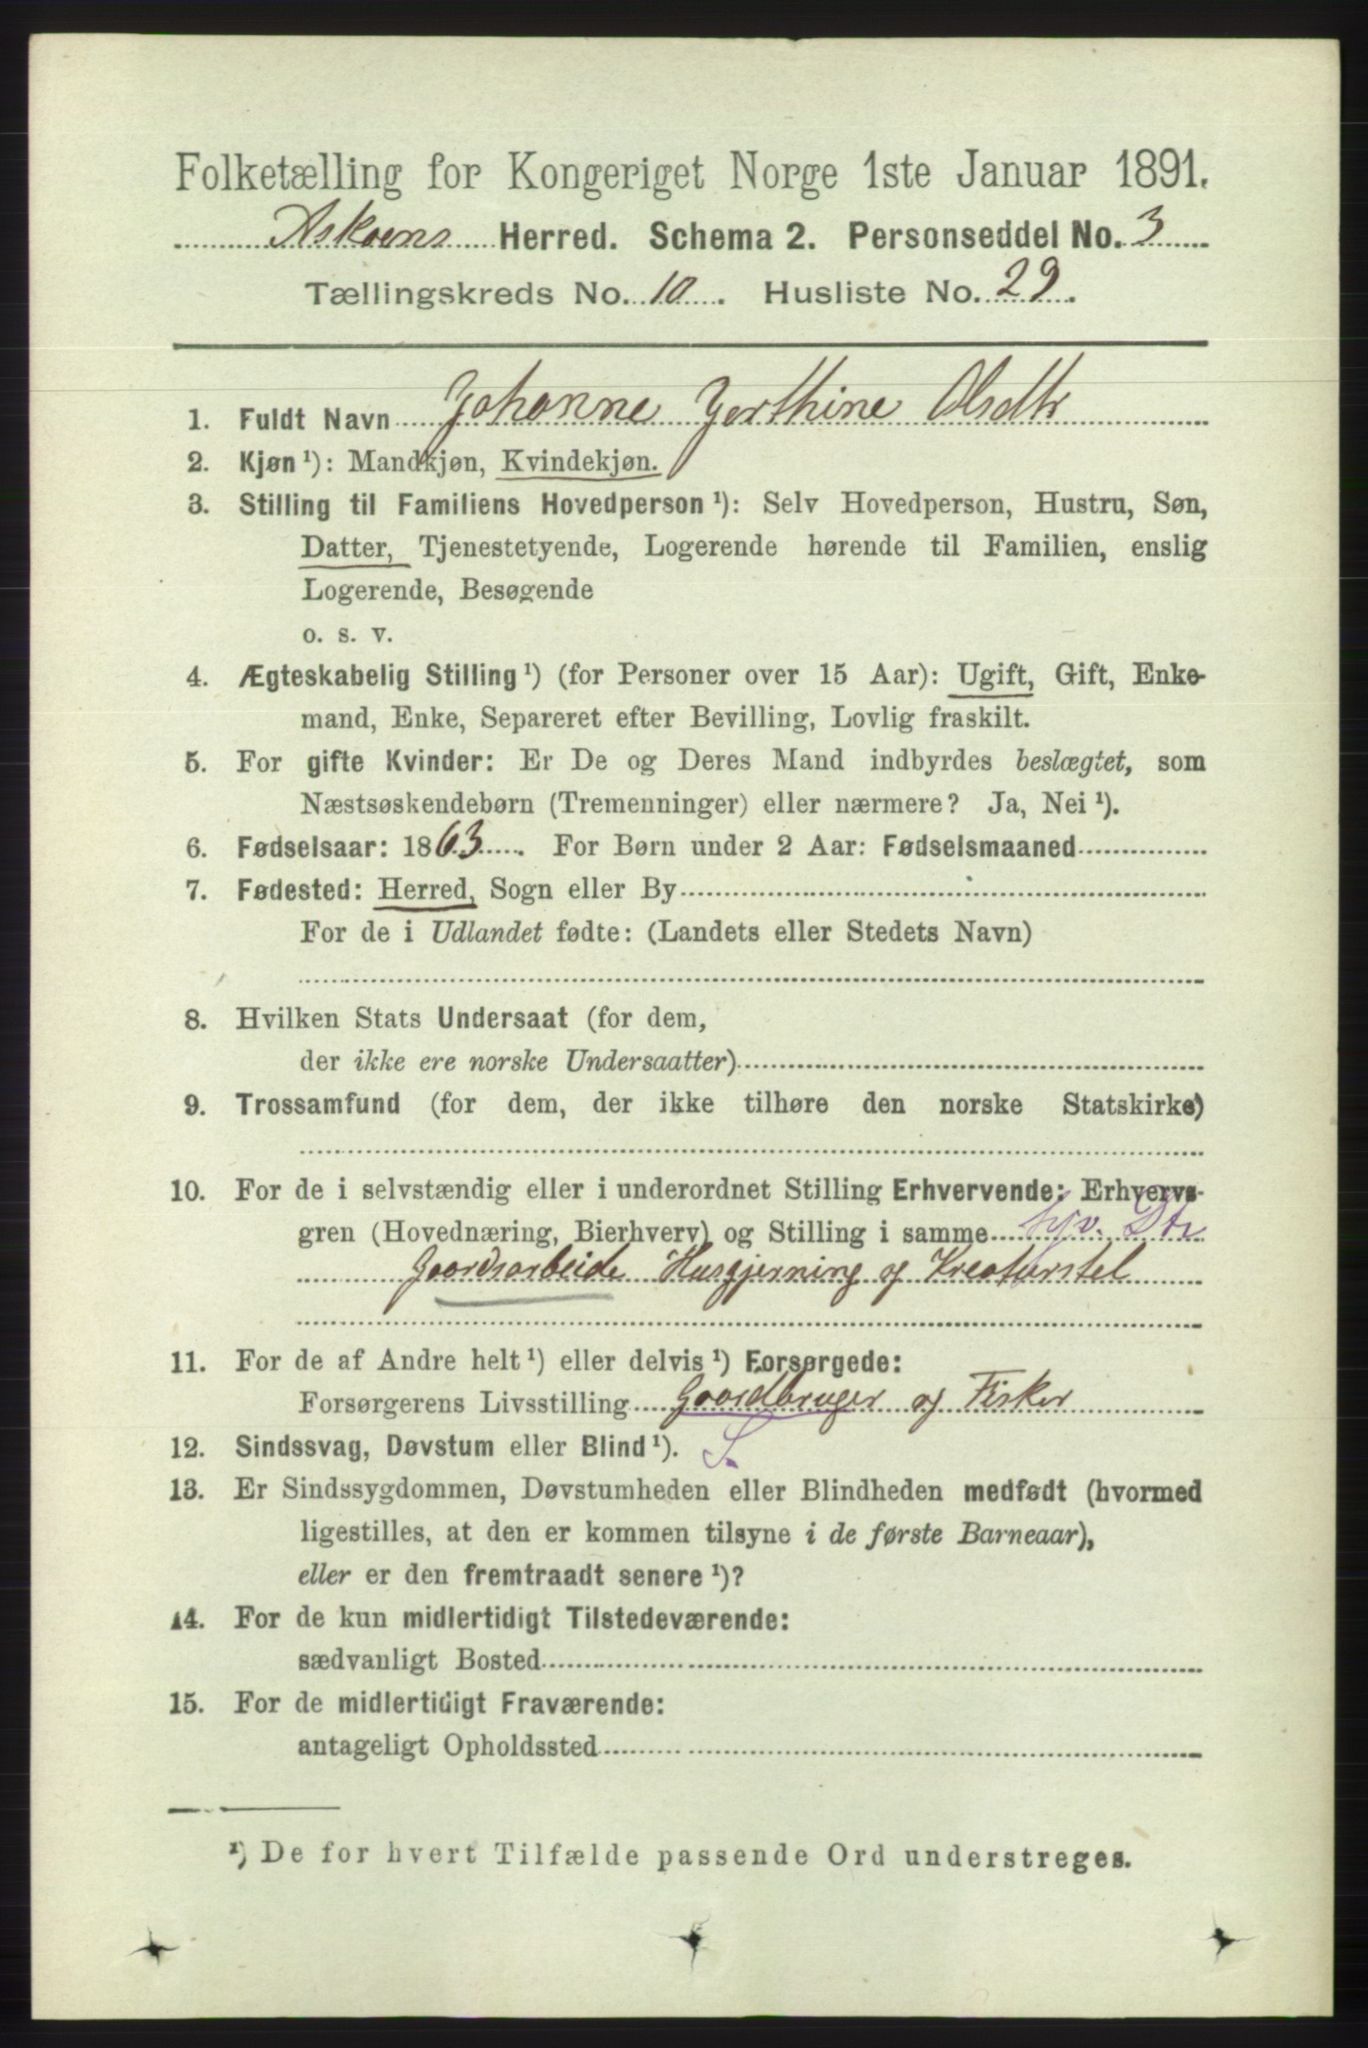 Folketælling for Kongeriget Norge 1ste Januar 1891.
Askøens Herred. Schema 2. Personseddel No. 3
Tællingskreds No. 10. Husliste No. 29.
1. Fuldt Navn Johanne Jerthine Olsdtr
2. Kjøn ¹): Mandkjøn, Kvindekjøn.
3. Stilling til Familiens Hovedperson ¹): Selv Hovedperson, Hustru, Søn,
Datter, Tjenestetyende, Logerende hørende til Familien, enslig
Logerende, Besøgende
o. s. v.
4. Ægteskabelig Stilling ¹) (for Personer over 15 Aar): Ugift, Gift, Enke-
mand, Enke, Separeret efter Bevilling, Lovlig fraskilt.
5. For gifte Kvinder: Er De og Deres Mand indbyrdes beslægtet, som
Næstsøskendebørn (Tremenninger) eller nærmere? Ja, Nei ¹).
6. Fødselsaar: 1863. For Børn under 2 Aar: Fødselsmaaned
7. Fødested: Herred, Sogn eller By
For de i Udlandet fødte: (Landets eller Stedets Navn)
8. Hvilken Stats Undersaat (for dem,
der ikke ere norske Undersaatter)
9. Trossamfund (for dem, der ikke tilhøre den norske Statskirke)
10. For de i selvstændig eller i underordnet Stilling Erhvervende: Erhvervs-
gren (Hovednæring, Bierhverv) og Stilling i samme hjv. Dtr
Gaardsarbeide Husgjerning og Kreaturstel
11. For de af Andre helt ¹) eller delvis ¹) Forsørgede:
Forsørgerens Livsstilling Gaardbruger og Fisker
12. Sindssvag, Døvstum eller Blind ¹). S.
13. Er Sindssygdommen, Døvstumheden eller Blindheden medfødt (hvormed
ligestilles, at den er kommen tilsyne i de første Barneaar),
eller er den fremtraadt senere ¹)?
14. For de kun midlertidigt Tilstedeværende:
sædvanligt Bosted
15. For de midlertidigt Fraværende:
antageligt Opholdssted
¹) De for hvert Tilfælde passende Ord understreges.